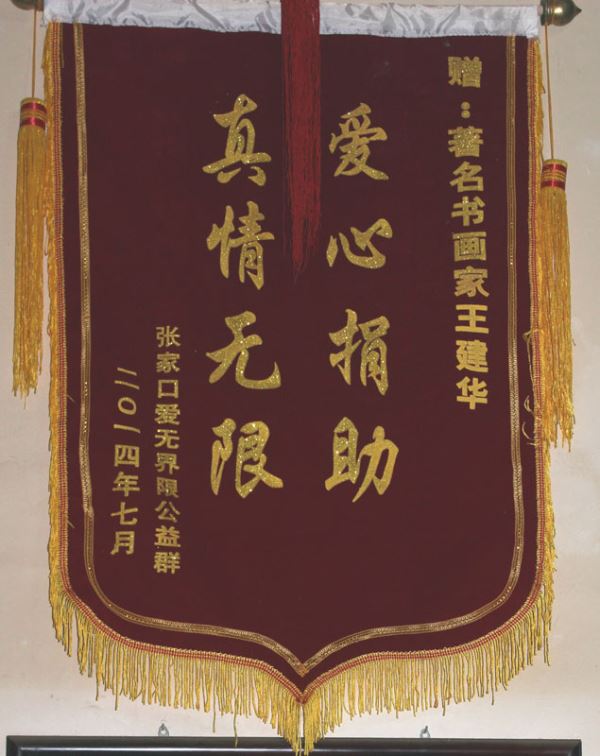 赠：著名书画家王建华
爱心捐助
真情无限
张家口爱无界限公益群
二〇一四年七月